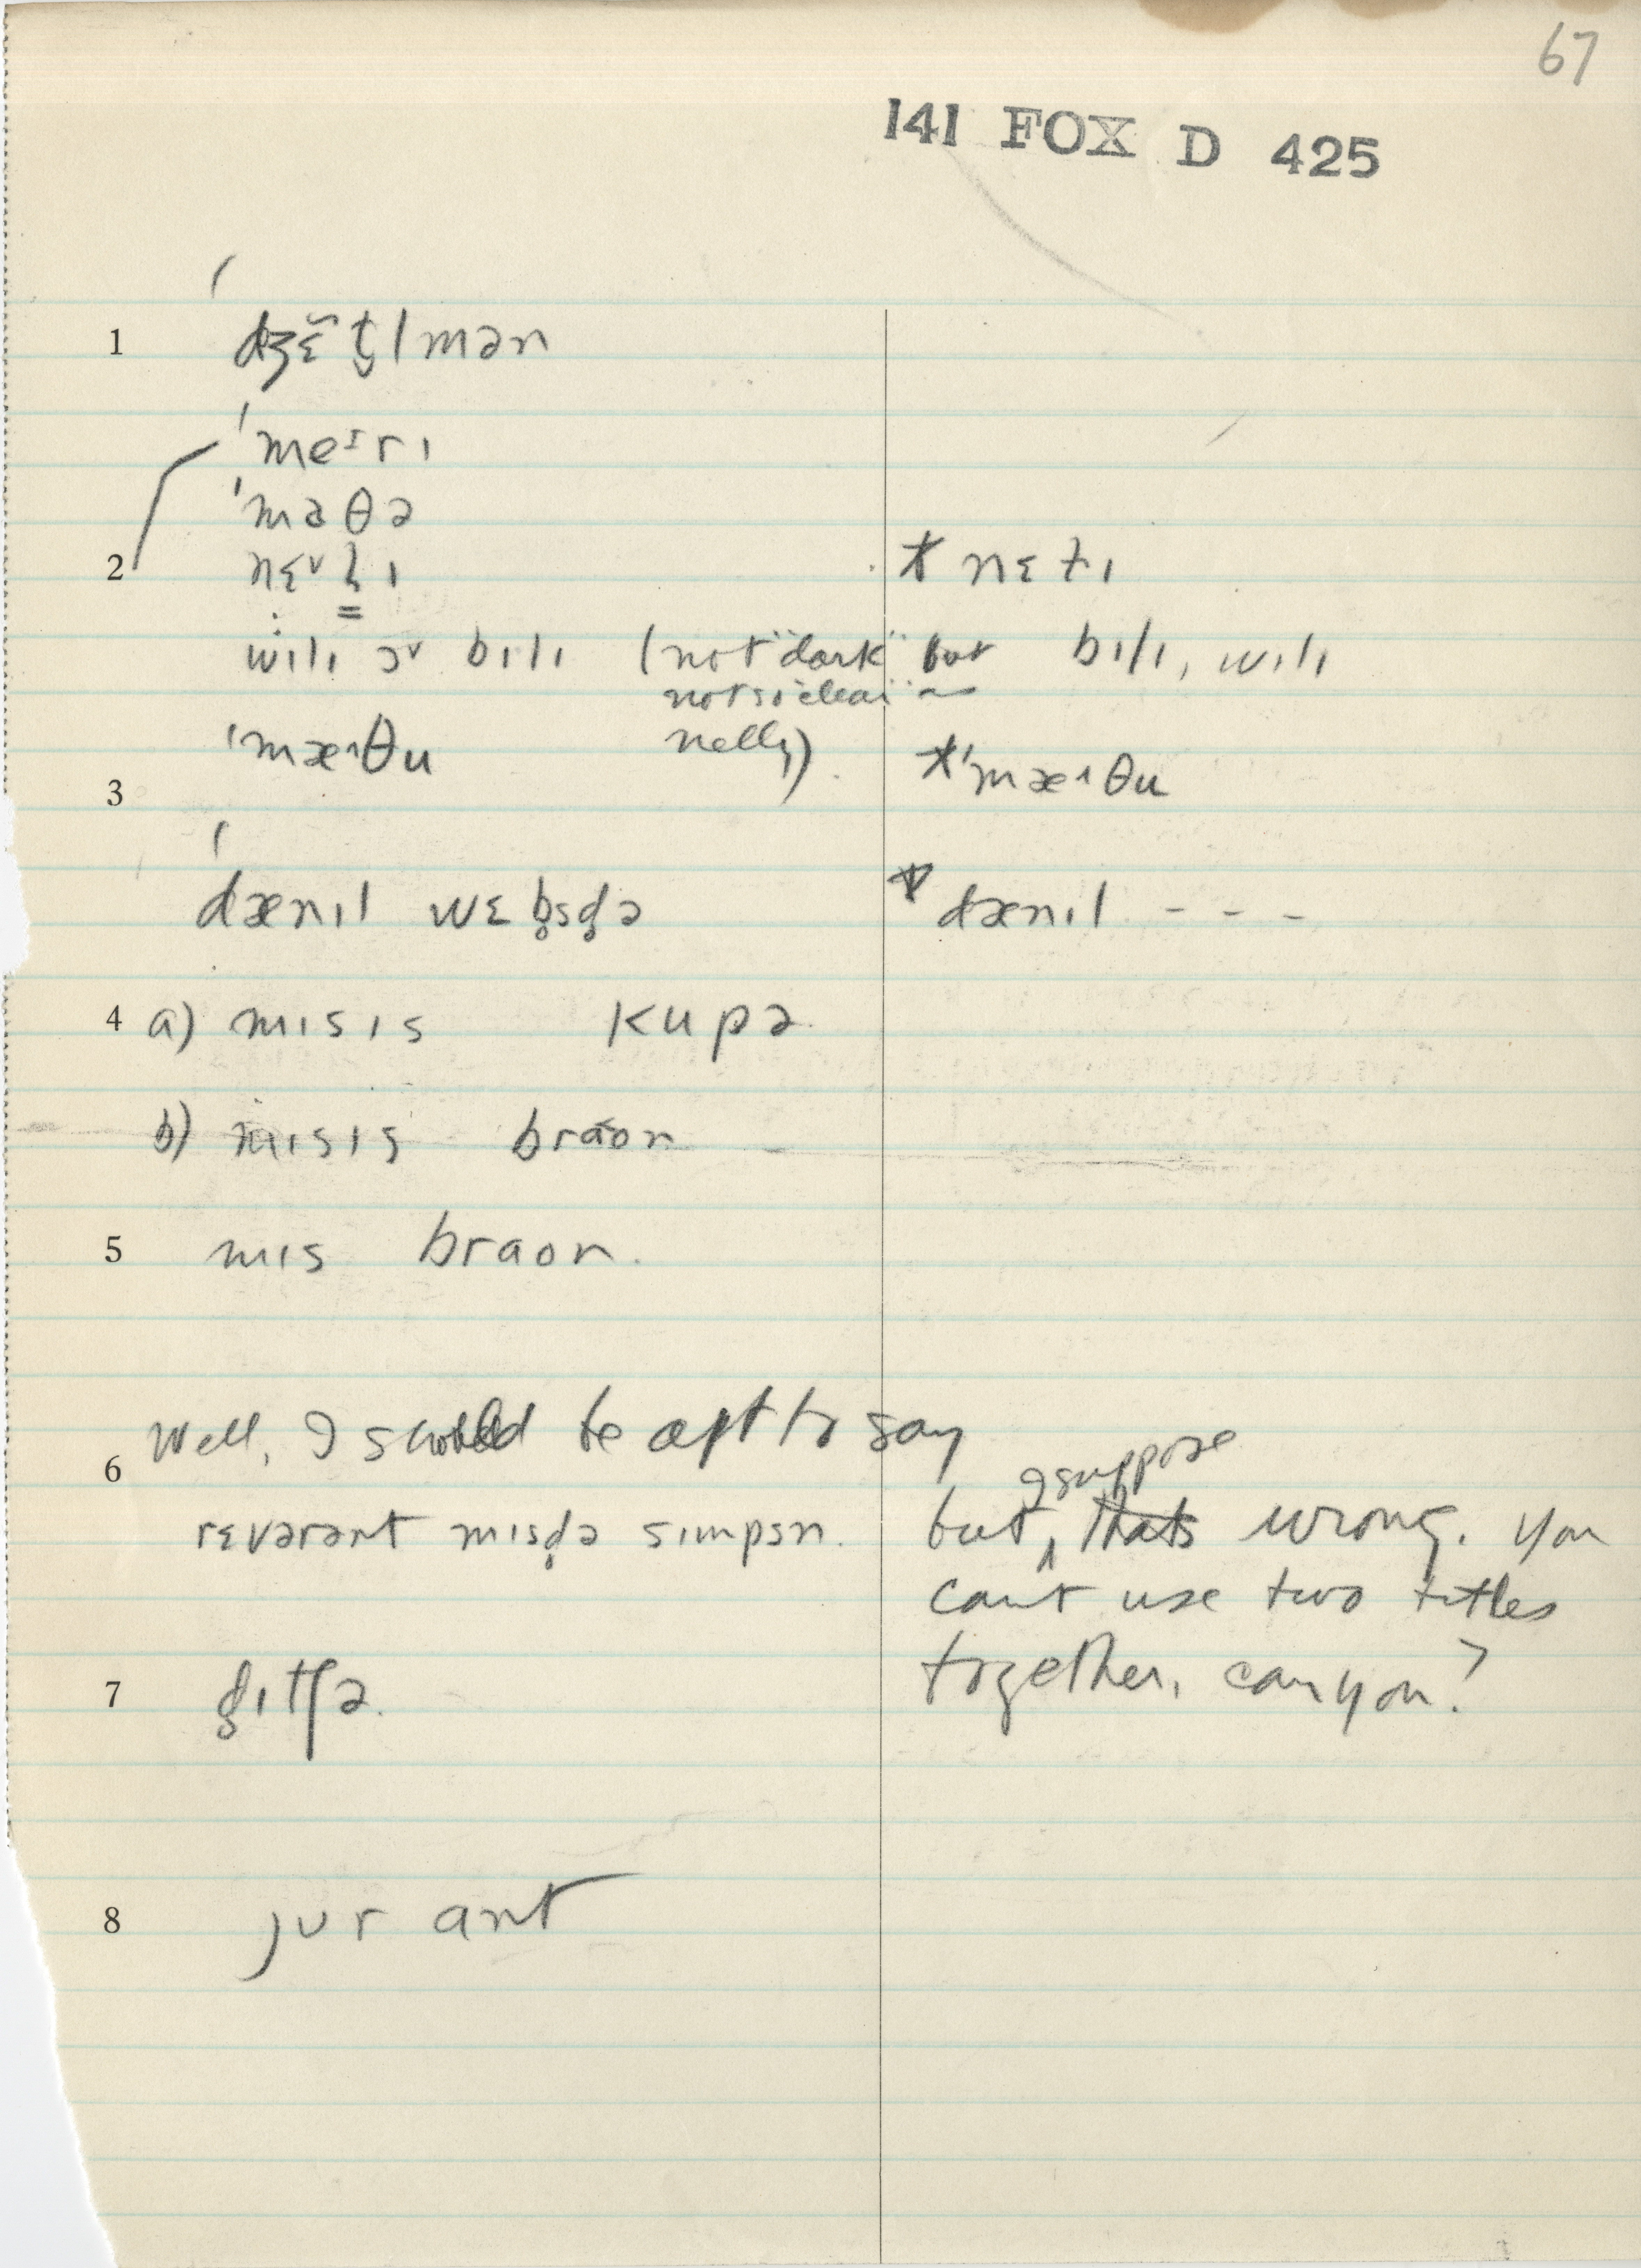 67
141 FOX D 425
1 dʒɛ̃t̬lmən
ˈmeɪrɪ
ˈmaθə
2 nɛᵛlɪ * nɛɫɪ
wɪlɪ ɔᵛ bɪlɪ (not "dark" but bɪlɪ, wɪlɪ
not so "clear" ~
nelly)
ˈmæ^θu *ˈmæ^θu
3
dænɪl wɛb̥sd̥ə * dænɪl - - -
4 a) mɪsɪs kupə
b) mɪsɪs braon
5 mɪs braon.
Well, I should be apt to say
6 I suppose
rɛvərənt mɪsd̥ə sɪmpsn. but ‸ thats wrong. You
can't use two titles
together, can you?
7 g̥ɪtʃə.
8 jʊr ant